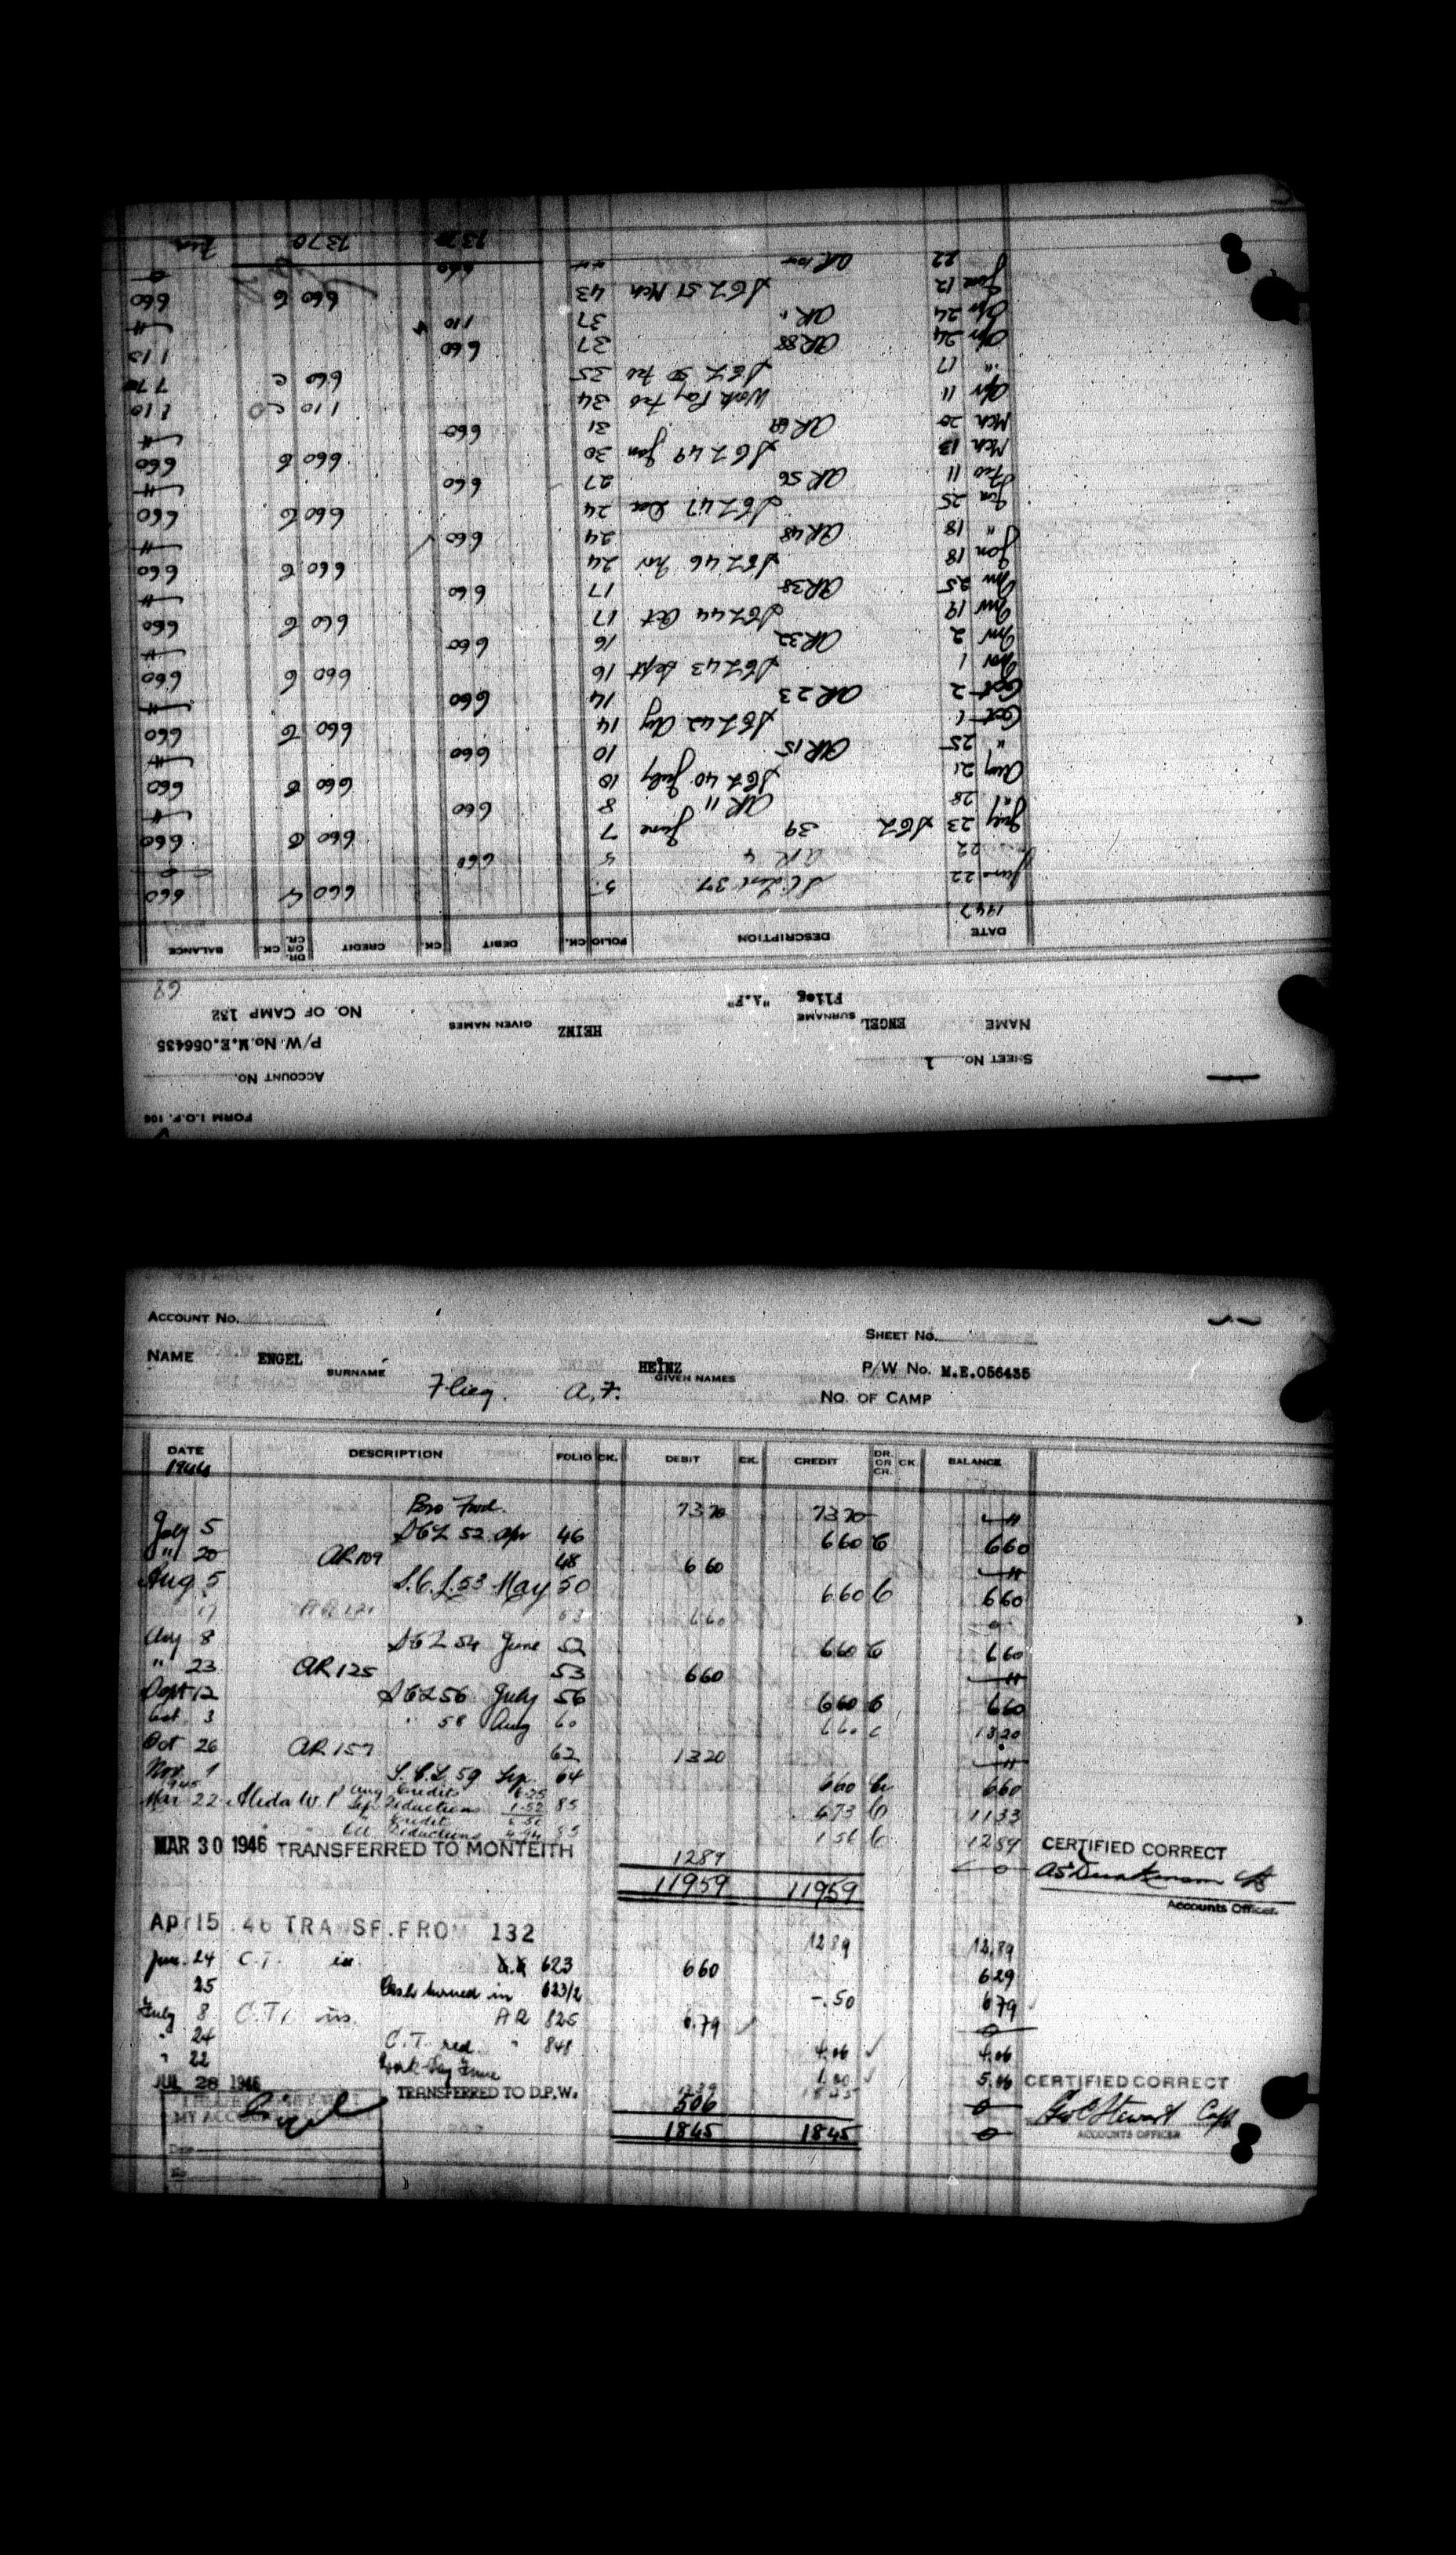 FORM I.O.F. 106
ACCOUNT No.
SHEET No. 1
P/W No. M.E.056435
NAME ENGEL HEINZ
SURNAME GIVEN NAMES
NO. OF CAMP 132
Flieg "A.F"
69
DATE DESCRIPTION FOLIO CK. DEBIT CK. CREDIT DR. OR CR. CK. BALANCE
1943
June 22 5 660 C 660
22 AR 4 5 660
July 23 SCL 39 June 7 660 C 660
28 AR 11 8 660
Aug 21 SCL 40 July 10 660 C 660
" 25 AR 15 10 660
Oct 1 SCL 42 Aug 14 660 C 660
Oct 2 AR 23 14 660
Nov 1 SCL 43 Sept 16 660 C 660
Nov 2 AR 32 16 660
Nov 19 SCL 44 Oct 17 660 C 660
Nov 25 AR 38 17 660
Jan 18 SCL 46 Nov 24 660 C 660
" 18 AR 48 24 660
Jan 25 SCL 47 Dec 24 660 C 660
Feb 11 AR 56 27 660
Mch 13 SCL 49 Jan 30 660 C 660
Mch 20 AR 31 660
Apr 11 Work Pay Feb 34 110 C 110
" 17 SCL 50 Feb 35 660 C 770
Apr 24 AR 88 37 660 110
Apr 24 AR 37 110
June 12 SCL 51 Mch 43 660 C 660
22 AR 660
7370 7370
ACCOUNT No.
SHEET No.
NAME ENGEL HEINZ P/W No. M.E.056435
SURNAME GIVEN NAMES
Flieg. A.F. NO. OF CAMP
DATE DESCRIPTION FOLIO CK. DEBIT CK. CREDIT DR. OR CR. CK. BALANCE
1944
Bro Fwd. 7370 7370
July 5 SCL 52 Apr 46 660 C 660
" 20 AR 109 48 660
Aug 5 S.C.L. 53 May 50 660 C 660
17 AR 121 660
Aug 8 SCL 54 June 52 660 C 660
" 23 AR 125 53 660
Sept 12 SCL 56 July 56 660 C 660
Oct. 3 " 58 Aug 60 660 C 1320
Oct 26 AR 157 62 1320
Nov. 1 S.C.L. 59 Sep. 64 660 C 660
1945
Mar 22 W.P. Aug Credits 6.25
Sep. Deductions 1.52 85 473 C 1133
Credit
Oct Deductions 4.94 85 156 C 1289
MAR 30 1946 TRANSFERRED TO MONTEITH 1289 0
CERTIFIED CORRECT
11959 11959
Accounts Officer.
Apr 15.46 TRANSF. FROM 132 1289 12.89
Jun. 24 C.T. 623 660 629
25 Cash turned in 623/2 -.50 679
July 8 C.T. AR 825 6.79 0
" 24 C.T. red. " 848 4.06 4.06
" 22 Work Pay June 1.00 5.06
JUL 28 1946 TRANSFERRED TO D.P.W. 506 0
CERTIFIED CORRECT
MY ACCOUNT Engel
Geo C Stewart Capt
ACCOUNTS OFFICER
1845 1845 0
Date
No